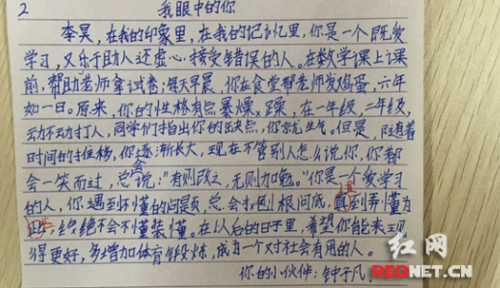 2
我眼中的你
李昊，在我的印象里，在我的记忆里，你是一个既爱
学习，又乐于助人还虚心接受错误的人。在数学课上课
前，帮助老师拿试卷；每天早晨，你在食堂帮老师发鸡蛋，六年
如一日。原来，你的性格有点暴燥、躁，在一年级，二年级，
动不动打人，同学们指出你的缺点，你就生气。但是，随着
时间的推移，你逐渐长大，现在不管别人怎么说你，你都
会一笑而过，总会说："有则改之，无则加勉。"你是一个爱学习
的人，你遇到不懂的问题，总会刨根问底，直到弄懂为
止，绝不会不懂装懂。在以后的日子里，希望你能表现
得更好，多增加体育锻炼，成为一个对社会有用的人。
你的小伙伴：钟子凡
红网
REDNET.CN